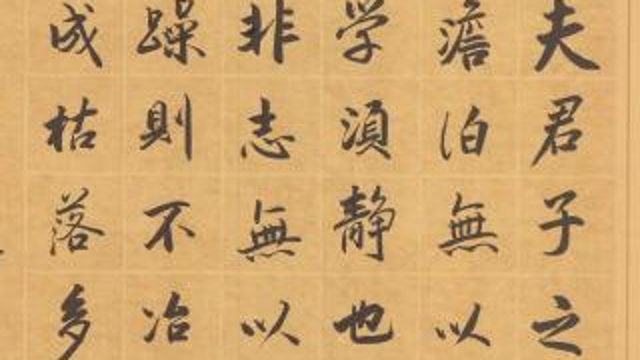 夫君子之
澹泊無以
学須静也
非志無以
躁則不冶
成枯落多